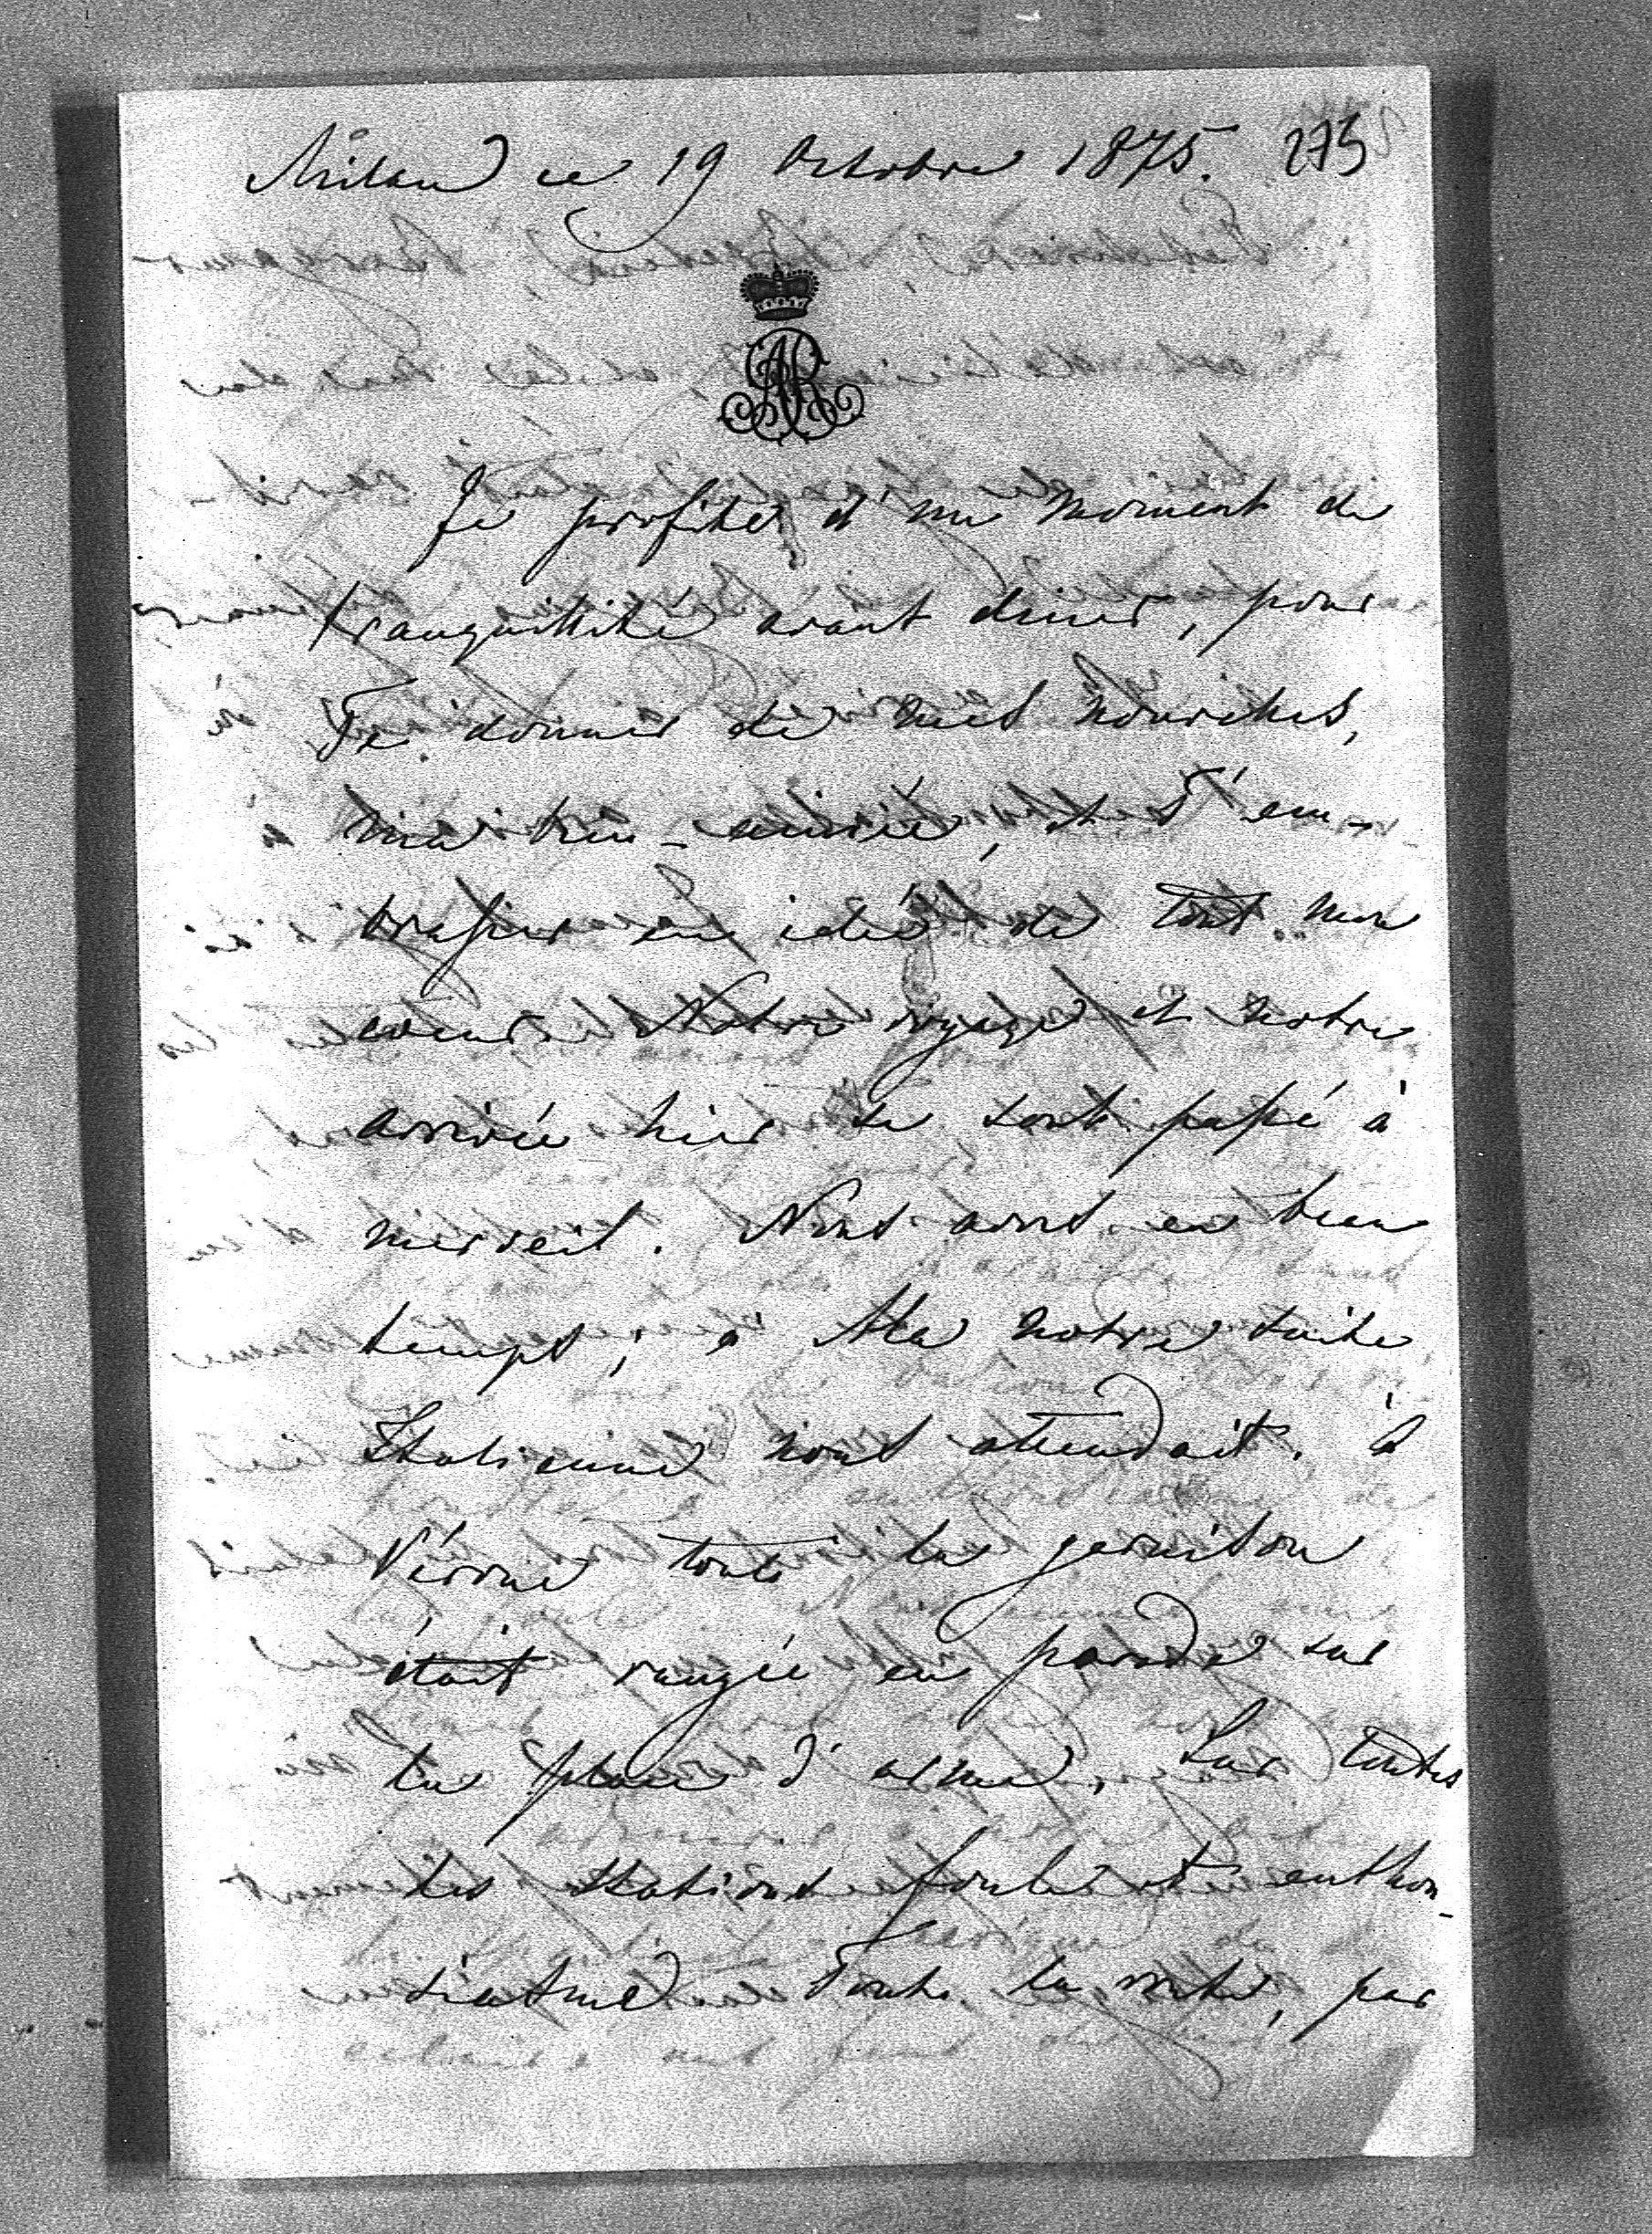 Milan ce 19 Octobre 1875. 275
AR
Je profite d'un moment de
tranquillité avant diner, pour
Te donner de mes nouvelles,
ma très-aimée, et T'em-
brasser en idée de tout mon
coeur. Notre voyage et notre
arrivée hier se sont passé à
merveil. Nous avons eu beau
temps; à Ala notre suite
Italienne nous attendait. à
Vérone toute la garnison
était rangée en parade sur
la place d'arme. Sur toutes
les stations foule et enthou-
siasme. Toute la suite, par